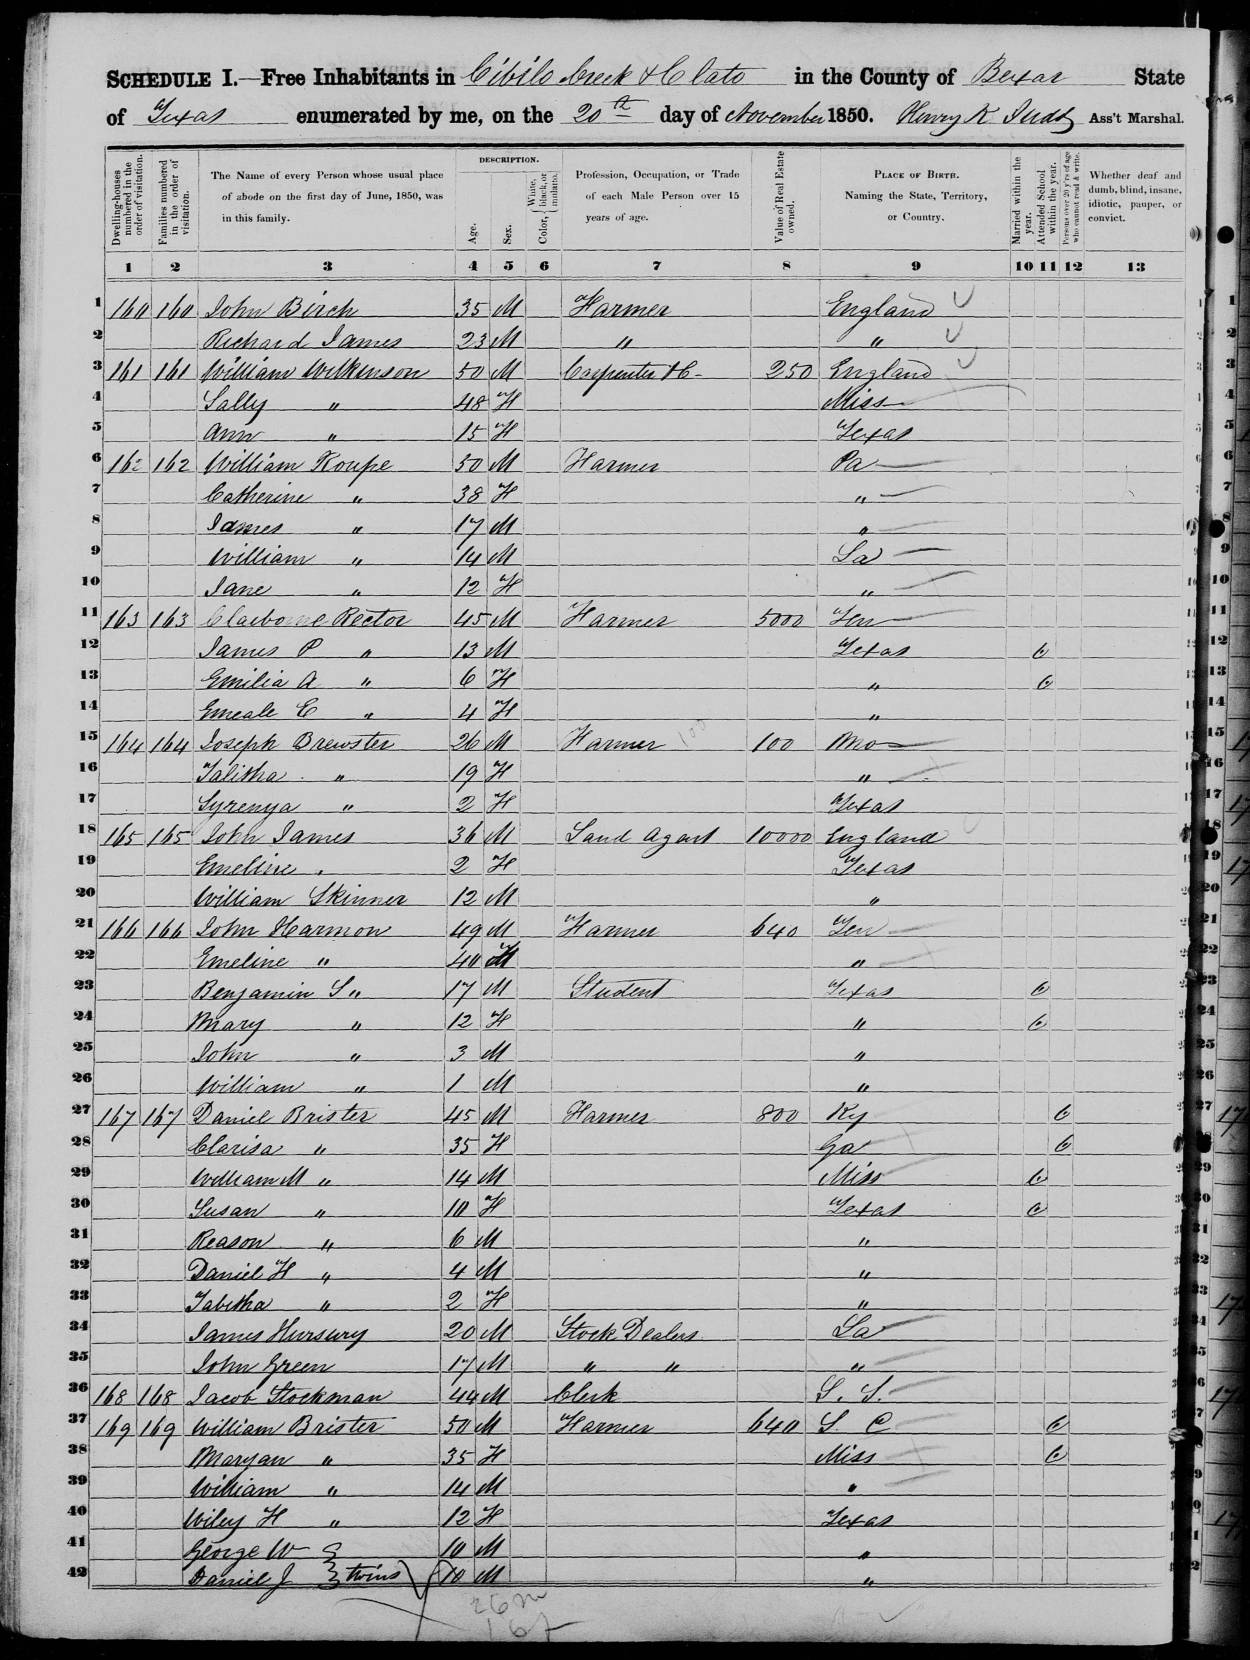 SCHEDULE I.—Free Inhabitants in Cibilo Creek & Clato in the County of Bexar State
of Texas enumerated by me, on the 20th day of November 1850. Henry K Judd Ass't Marshal.
Dwelling-houses numbered in the order of visitation.
Families numbered in the order of visitation.
The Name of every Person whose usual place of abode on the first day of June, 1850, was in this family.
DESCRIPTION.
Age.
Sex.
Color, { White, black, or mulatto.
Profession, Occupation, or Trade of each Male Person over 15 years of age.
Value of Real Estate owned.
PLACE OF BIRTH. Naming the State, Territory, or Country.
Married within the year.
Attended School within the year.
Persons over 20 y'rs of age who cannot read & write.
Whether deaf and dumb, blind, insane, idiotic, pauper, or convict.
1 2 3 4 5 6 7 8 9 10 11 12 13
1 160 160 John Birch 35 M Farmer England
2 Richard James 23 M " "
3 161 161 William Wilkinson 50 M Carpenter &C- 250 England
4 Sally " 48 F Miss
5 Ann " 15 F Texas
6 162 162 William Koupe 50 M Farmer Pa
7 Catherine " 38 F "
8 James " 17 M "
9 William " 14 M La
10 Jane " 12 F "
11 163 163 Claiborne Rector 45 M Farmer 5000 Ten
12 James P " 13 M Texas
13 Emilia A " 6 F "
14 Emeale E " 4 F "
15 164 164 Joseph Brewster 26 M Farmer 100 100 Mo
16 Talitha " 19 F "
17 Syrenya " 2 F Texas
18 165 165 John James 36 M Land Agent 10000 England
19 Emeline " 2 F Texas
20 William Skinner 12 M "
21 166 166 John Harmon 49 M Farmer 640 Ten
22 Emeline " 40 "
23 Benjamin S " 17 M Student Texas
24 Mary " 12 F "
25 John " 3 M "
26 William " 1 M "
27 167 167 Daniel Brister 45 M Farmer 800 Ky
28 Clarisa " 35 F Ga
29 William M " 14 M Miss
30 Susan " 10 F Texas
31 Reason " 6 M "
32 Daniel H " 4 M "
33 Tabitha " 2 F "
34 James Hursury 20 M Stock Dealers La
35 John Green 17 M " " "
36 168 168 Jacob Stockman 44 M Clerk
37 169 169 William Brister 50 M Farmer 640 S. C
38 Maryan " 35 F Miss
39 William " 14 M "
40 Wiley H " 12 F Texas
41 George W 10 M "
42 Daniel J } twins 10 M "
26 m
16 f